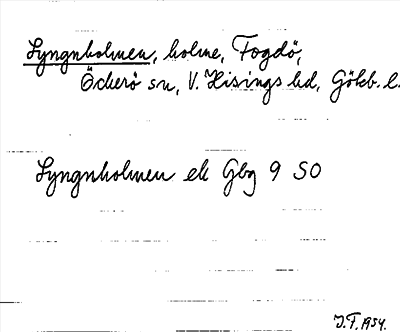 Lyngnholmen, holme, Fogdö,
Öckerö sn, V. Hisings hd, Götb. l.
Lyngnholmen ek Gbg 9 SO
J.F. 1934.